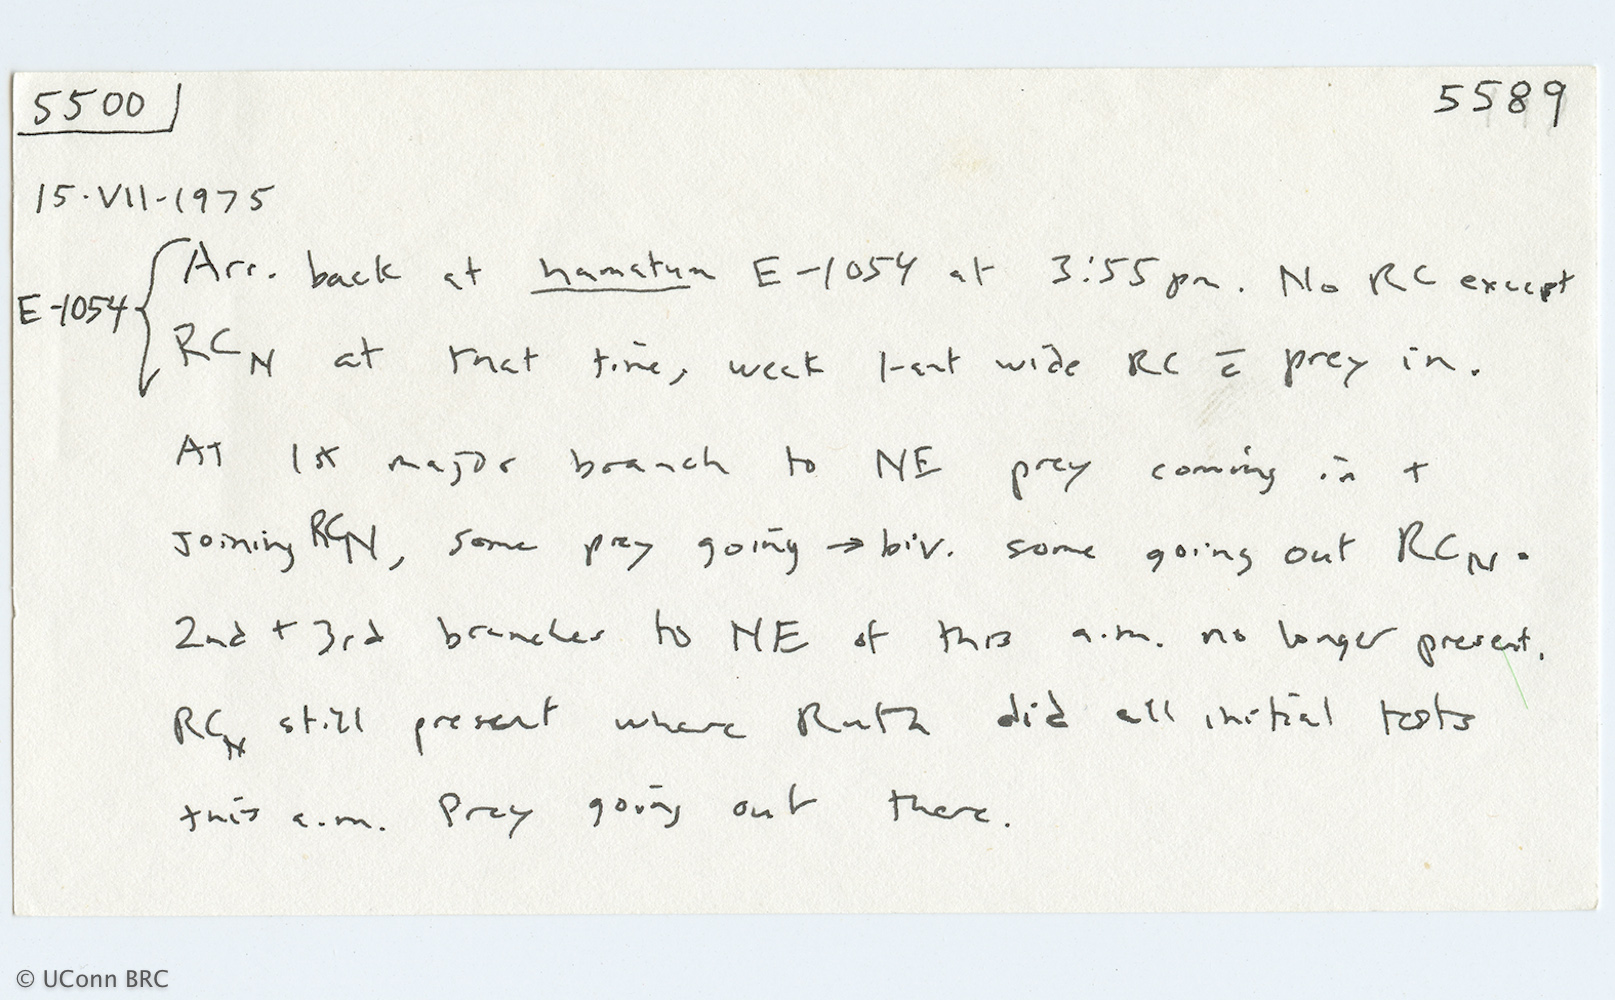 5500
5589
15·VII-1975
E-1054
Arr. back at hamatum E-1054 at 3:55 pm. No RC except
RCN at that time, weak 1-ant wide RC c̄ prey in.
At 1st major branch to NE prey coming in +
joining RCN, some prey going → biv. some going out RCN.
2nd + 3rd branches to NE of this a.m. no longer present.
RCN still present where Ruth did all initial tests
this a.m. Prey going out there.
© UConn BRC